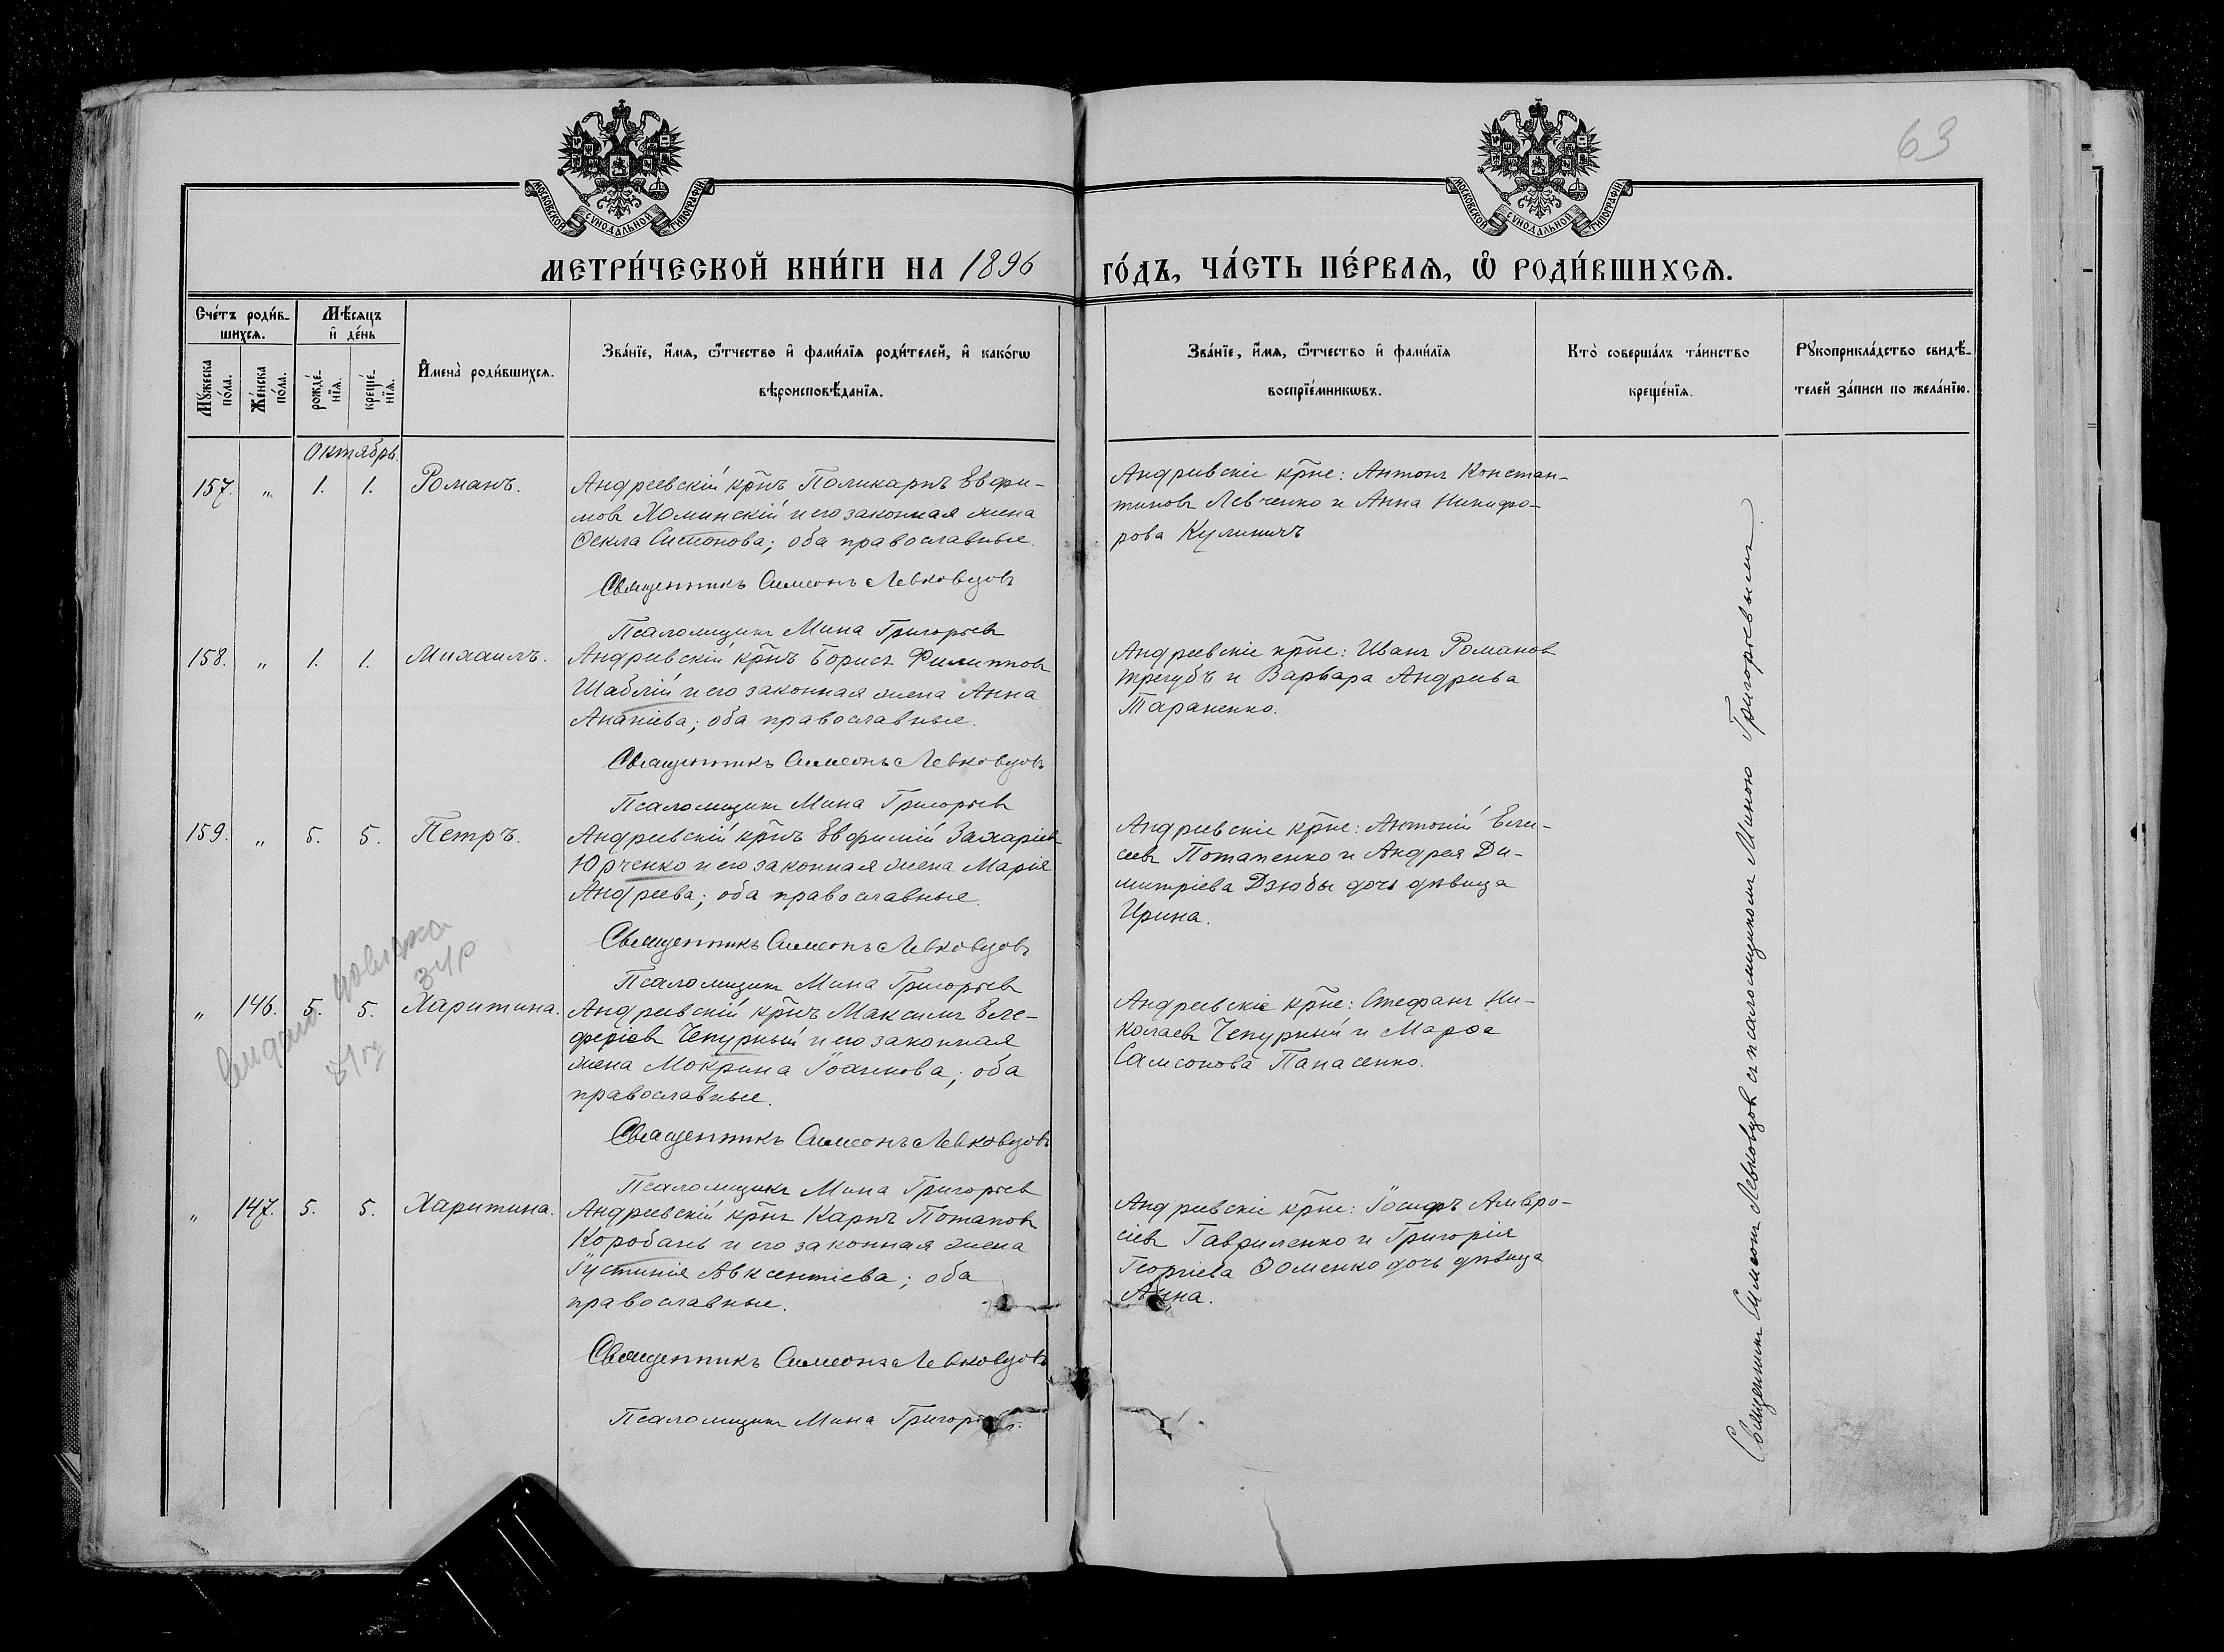 63
МОСКОВСКОЙ СУНОДАЛЬНОЙ ТИПОГРАФІИ
МОСКОВСКОЙ СУНОДАЛЬНОЙ ТИПОГРАФІИ
МЕТРИ́ЧЕСКОЙ КНИ́ГИ НА 1896
ГО́ДЪ, ЧА́СТЬ ПЕ́РВАѦ, Ѽ РОДИ́ВШИХСѦ.
Сче́тъ роди́в-
шихсѧ.
Мꙋ́жеска
по́ла.
Же́нска
по́ла.
Мѣ́сѧцъ
и҆ де́нь
рожде́-
нїѧ.
креще́-
нїѧ.
И҆мена̀ роди́вшихсѧ.
Зва́нїе, и҆́мѧ, ѻ҆́тчество и҆ фами́лїѧ роди́телей, и҆ како́гѡ
вѣроисповѣ́данїѧ.
Зва́нїе, и҆́мѧ, ѻ҆́тчество и҆ фами́лїѧ
воспрїе́мникѡвъ.
Кто̀ соверша́лъ та́инство
креще́нїѧ.
Рꙋкоприкла́дство свидѣ́-
телей за́писи по жела́нїю.
Октябрь.
157. „ 1. 1. Романъ.
Андреевскій крнъ Поликарпъ Евфи-
мовъ Хоминскій и его законная жена
Ѳекла Симонова; оба православные.
Священникъ Симеонъ Левковцовъ
Псаломщикъ Мина Григорьевъ
Андреевскіе крне: Антонъ Констан-
тиновъ Левченко и Анна Никифо-
рова Кулиничъ
158. „ 1. 1. Михаилъ.
Андреевскій крнъ Борисъ Филипповъ
Шаблій и его законная жена Анна
Ананіева; оба православные.
Священникъ Симеонъ Левковцовъ
Псаломщикъ Мина Григорьевъ
Андреевскіе крне: Иванъ Романовъ
Трегубъ и Варвара Андреева
Тараненко.
159. „ 5. 5. Петръ.
Андреевскій крнъ Евфимій Захаріевъ
Юрченко и его законная жена Марія
Андреева; оба православные.
Священникъ Симеонъ Левковцовъ
Псаломщикъ Мина Григорьевъ
Андреевскіе крне: Антоній Ели-
сеевъ Потапенко и Андрея Ди-
митріева Дзюбы дочь дѣвица
Ирина.
„ 146. 5. 5. Харитина.
Андреевскій крнъ Максимъ Еле-
ферiевъ Чепурный и его законная
жена Мокрина Іоаннова; оба
православные.
Священникъ Симеонъ Левковцовъ
Псаломщикъ Мина Григорьевъ
Андреевскіе крне: Стефанъ Ни-
колаевъ Чепурный и Марѳа
Самсонова Панасенко.
„ 147. 5. 5. Харитина.
Андреевскій крнъ Карпъ Потаповъ
Коробань и его законная жена
Іустинія Авксентіева; оба
православные.
Священникъ Симеонъ Левковцовъ
Псаломщикъ Мина Григорьевъ.
Андреевскіе крне: Іосифъ Амвро-
сіевъ Гавриленко и Григорія
Георгіева Ѳоменко дочь дѣвица
Анна.
Священникъ Симеонъ Левковцовъ съ псаломщикомъ Миною Григорьевымъ.